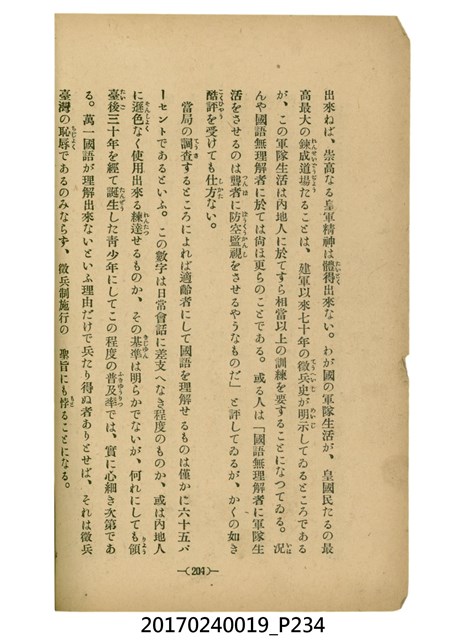 出來ねば、崇高なる皇軍精神は體得出來ない。わが國の軍隊生活が、皇國民たるの最
高最大の錬成道場たることは、建軍以來七十年の徴兵史が明示してゐるところである
が、この軍隊生活は内地人に於てすら相當以上の訓練を要することになつてゐる。况
んや國語無理解者に於ては尙ほ更らのことである。或る人は「國語無理解者に軍隊生
活をさせるのは聾者に防空監視をさせるやうなものだ」と評してゐるが、かくの如き
酷評を受けても仕方ない。
當局の調査するところによれば適齡者にして國語を理解せるものは僅かに六十五パ
ーセントであるといふ。この數字は日常會話に差支へなき程度のものか、或は内地人
に遜色なく使用出來る練達せるものか、その基準は明らかでないが、何れにしても領
臺後三十年を經て誕生した青少年にしてこの程度の普及率では、實に心細き次第であ
る。萬一國語が理解出來ないといふ理由だけで兵たり得ぬ者ありとせば、それは徴兵
臺灣の恥辱であるのみならず、徴兵制施行の 聖旨にも悖ることになる。
—(204)—
20170240019_P234